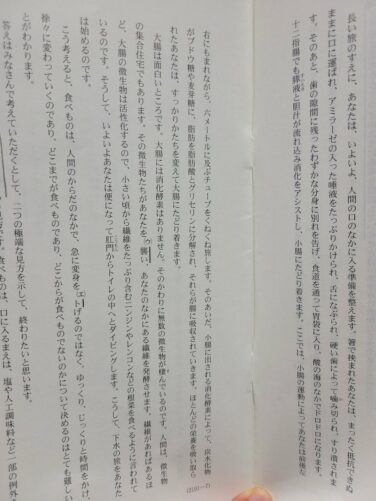 長い旅のすえに、あなたは、いよいよ、人間の口のなかに入る準備を整えます。箸で挟まれたあなたは、まったく抵抗できぬ
ままに口に運ばれ、アミラーゼの入った唾液をたっぷりかけられ、舌になぶられ、硬い歯によって噛み切られ、すり潰されま
す。そのあと、歯の隙間に残ったわずかな分身に別れを告げ、食道を通って胃袋に入り、酸の海のなかでドロドロになります。
十二指腸でも膵液と胆汁が流れ込み消化をアシストし、小腸にたどり着きます。ここでは、小腸の運動によってあなたは前後左
右にもまれながら、六メートルに及ぶチューブをくねくね旅します。そのあいだ、小腸に出される消化酵素によって、炭水化物
がブドウ糖や麦芽糖に、脂肪を脂肪酸とグリセリンに分解され、それらが腸に吸収されていきます。ほとんどの栄養を吸い取ら
れたあなたは、すっかりかたちを変えて大腸にたどり着きます。
大腸は面白いところです。大腸には消化酵素はありません。そのかわりに無数の微生物が棲んでいるのです。人間は、微生物
の集合住宅でもあります。その微生物たちがあなたを襲い、あなたのなかにある繊維を発酵させます。繊維があればあるほ
ど、大腸の微生物は活性化するので、小さい頃から繊維をたっぷり含むニンジンやレンコンなどの根菜を食べるように言われて
いるのです。そうして、いよいよあなたは便になって肛門からトイレの中へとダイビングします。こうして、下水の旅をあなた
は始めるのです。
こう考えると、食べものは、人間のからだのなかで、急に変身をとげるのではなく、ゆっくり、じっくりと時間をかけ、
徐々に変わっていくのであり、どこまでが食べものであり、どこからが食べものでないのかについて決めるのはとても難しい
ことがわかります。
答えはみなさんで考えていただくとして、二つの極端な見方を示して、終わりたいと思います。
食べものは、口に入るまえは、塩や人工調味料など一部の例外